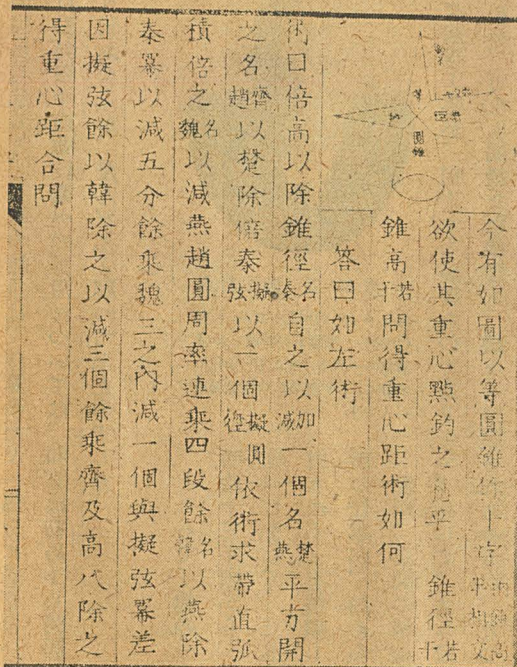 今有如圖以等圓錐作十字
欲使其重心點釣之 平 錐徑若干
錐高若干問得重心距術如何
答曰如左術
術曰倍高以除錐徑名秦自之以加減一個名楚燕平方開
之名齊趙以楚除倍秦擬弦以一個擬圓徑依術求帶直弧
積倍之名魏以減燕趙圓周率連乘四段餘名韓以燕除
秦冪以減五分餘乘魏三之內減一個與擬弦冪差
因擬弦餘以韓除之以減三個餘乘齊及高八除之
得重心距合問
圓錐